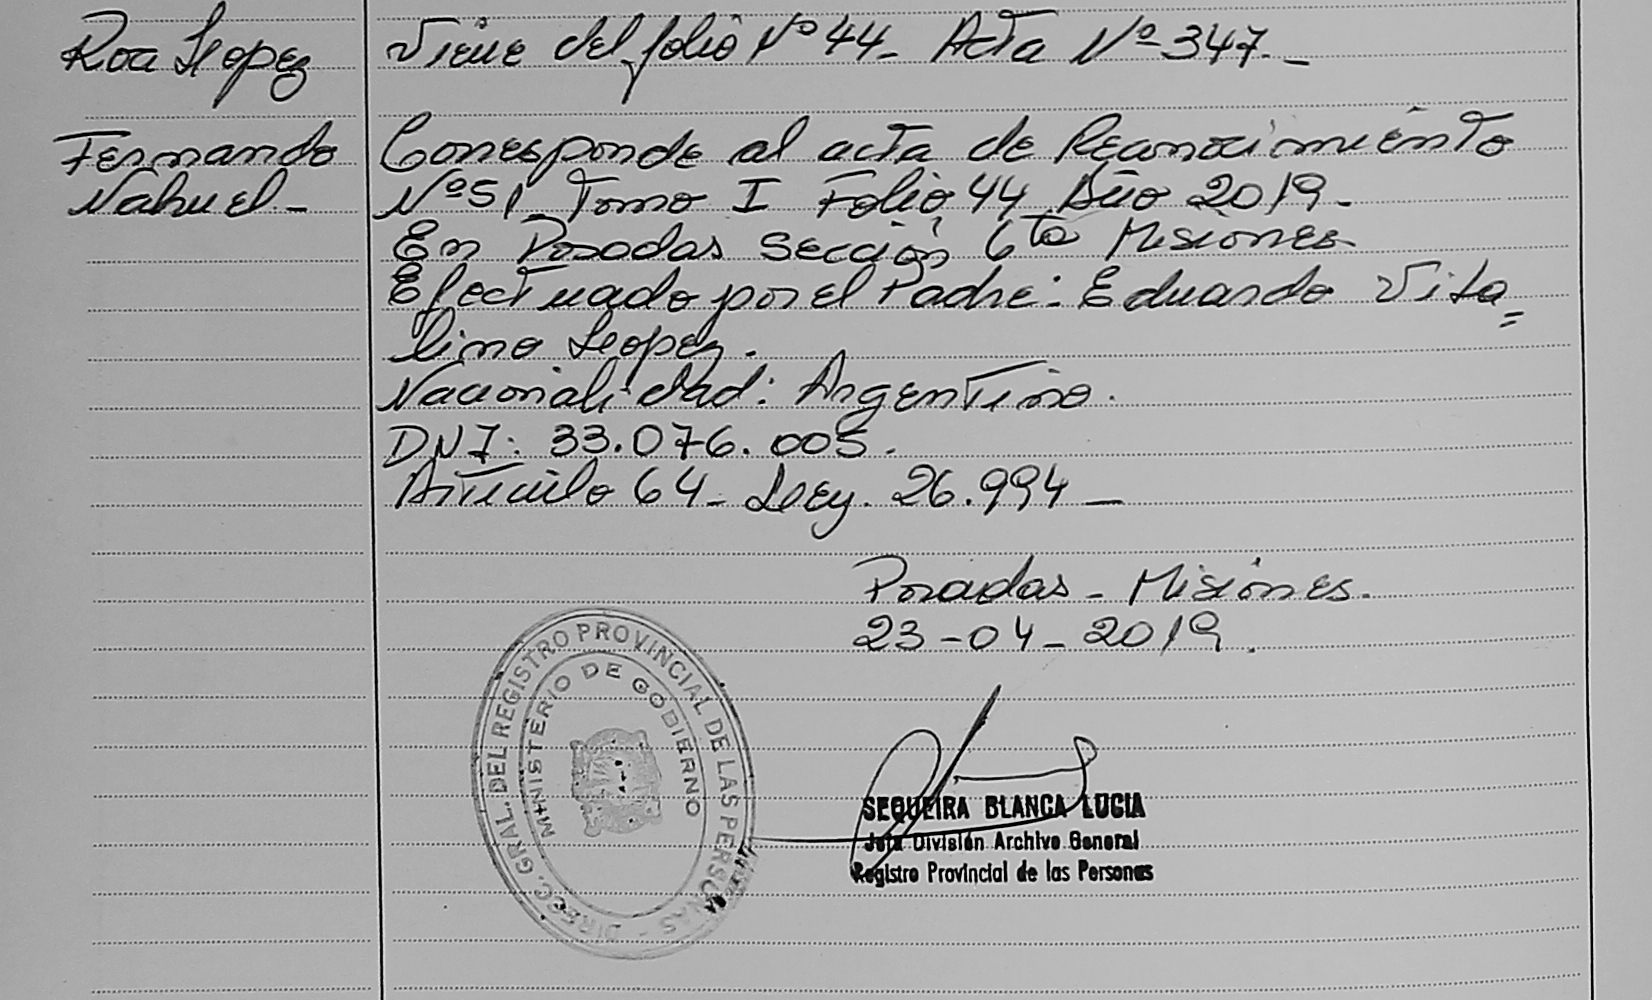 Roa Lopez
Fernando
Nahuel -
Viene del folio Nº 44 - Acta Nº 347. -
Corresponde al acta de Reconocimiento
Nº 51 Tomo I Folio 44 Año 2019 -
En Posadas Sección 6ta Misiones
Efectuado por el Padre: Eduardo Vita=
lino Lopez.
Nacionalidad: Argentino.
DNI: 33.076.005.
Artículo 64 - Ley. 26.994 -
Posadas - Misiones.
23-04-2019.
DIRECC. GRAL. DEL REGISTRO PROVINCIAL DE LAS PERSONAS -
MINISTERIO DE GOBIERNO
SEQUEIRA BLANCA LUCIA
Jefa División Archivo General
Registro Provincial de las Personas